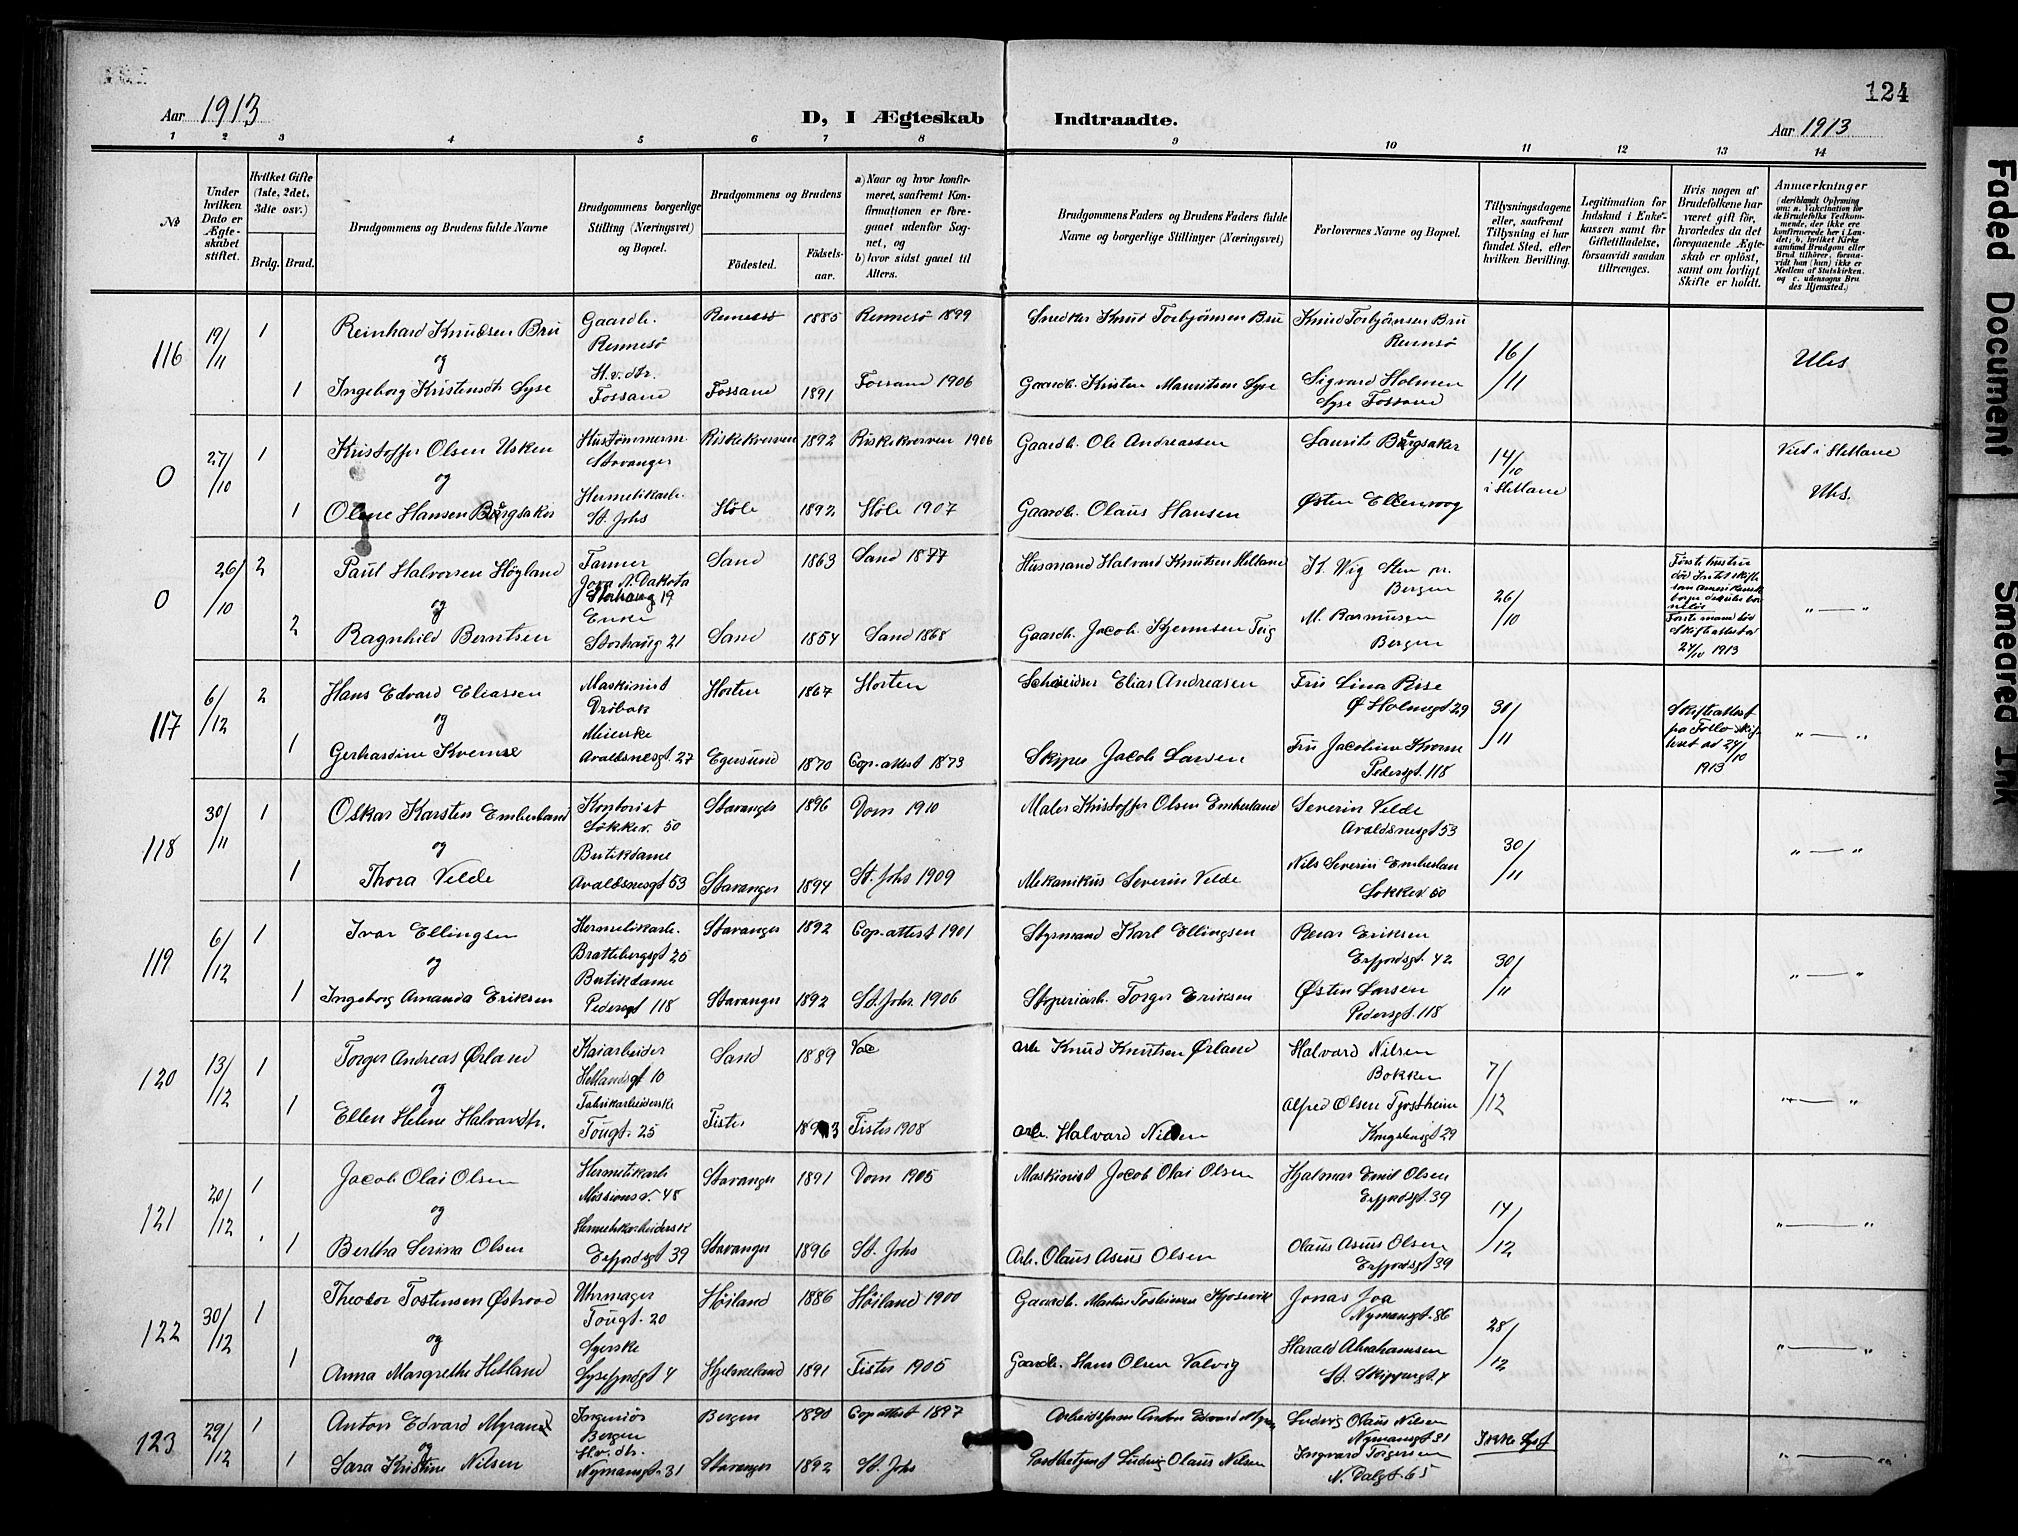 124
Aar 1913
D, I Ægteskab Indtraadte.
Aar 1913
1 2 3 4 5 6 7 8 9 10 11 12 13 14
№
Under hvilken Dato er Ægteskabet stiftet.
Hvilket Gifte (1ste, 2det, 3die osv.)
Brdg. Brud.
Brudgommens og Brudens fulde Navne
Brudgommens borgerlige Stilling (Næringsvei) og Bopæl.
Brudgommens og Brudens
Fødested.
Fødselsaar.
a) Naar og hvor konfirmeret, saafremt Konfirmationen er foregaaet udenfor Sognet, og
b) hvor sidst gaaet til Alters.
Brudgommens Faders og Brudens Faders fulde Navne og borgerlige Stillinger (Næringsvei)
Forlovernes Navne og Bopæl.
Tillysningsdagene eller, saafremt Tillysning ei har fundet Sted, efter hvilken Bevilling.
Legitimation for Indskud i Enkekassen samt for Giftetilladelse, forsaavidt saadan tiltrænges.
Hvis nogen af Brudefolkene har været gift før, hvorledes da det foregaaende Ægteskab er opløst, samt om lovligt Skifte er holdt.
Anmærkninger (deriblandt Oplysning om: a. Vakcination for de Brudefolks Vedkommende, der ikke ere konfirmerede her i Landet; b. hvilket Kirkesamfund Brudgom eller Brud tilhører, forsaavidt han (hun) ikke er Medlem af Statskirken, og c. udensogns Brudes Hjemsted.)
116 19/11 1 Reinhard Knudsen Bru Gaardb. Rennesø Rennesø 1885 Rennesø 1899 Snedker Knud Torbjörnsen Bru Knud Torbjörnsen Bru Rennsø 16/11
og
1 Ingeborg Kristensdtr Lyse H.v.dtr. Fossand Fossand 1891 Fossand 1906 Gaardb. Kristen Mauritsen Lyse Sigvard Holmen Lyse Fossand
0 27/10 1 Kristoffer Olsen Usken Hustømmerm. Stavanger Riskekverven 1892 Riskekverven 1906 Gaardb. Ole Andreassen Laurits Bærgsaker 14/10 i Hetland Viet i Hetland
og
1 Olene Hansen Bærgsaker Hermetikarb. St. Johs Høle 1892 Høle 1907 Gaardb. Olaus Hansen Østen Ellenvoog
0 26/10 2 Paul Halvorsen Høyland Farmer N. Dakota Storhaug 19 Sand 1863 Sand 1877 Husmand Halvard Knutsen Hetland K. Wig Sten pr. Bergen 26/10
og
2 Ragnhild Berntsen Enke Storhaug 21 Sand 1854 Sand 1868 Gaardb. Jacob Teig M. Rasmusen Bergen
27/10 1913 "—"
117 6/12 2 Hans Edvard Eliassen Maskinist Drøbak Horten 1867 Horten Elias Andreasen Fru Lina Rise Ø Holmegt 29 30/11
Skifteattest fra Follo 24/10 1913 "—"
og
1 Gerhardine Kverne Meierske Avaldsnesgt. 27 Egersund 1870 Cop. attest 1873 Skipper Jacob Larsen Fru Jacobine Kverne Pedersgt. 118
118 30/11 1 Oskar Karsten Emberland Kontorist Løkkev. 50 Stavanger 1896 Dom 1910 Maler Kristoffer Olsen Emberland Severin Velde Avaldsnesgt 53 30/11 "—"
og
1 Thora Velde Butikdame Avaldsnesgt 53 Stavanger 1894 St. Johs 1909 Mekanikus Severin Velde Nils Severin Emberlan Løkkev. 50
119 6/12 1 Ivar Ellingsen Hermetikarb. Brattebergsgt 25 Stavanger 1892 Cop. attest 1901 Styrmand Karl Ellingsen Peder Eriksen Erfjordsgt. 42 30/11 "—"
og
1 Ingeborg Amanda Eriksen Butikdame Pedersgt 118 Stavanger 1892 St. Johs. 1906 Støperiarb. Torger Eriksen Østen Larsen Pedersgt. 118
120 13/12 1 Torger Andreas Ørland Kaiarbeider Hetlandsgt 10 Sand 1889 Arb Knud Knutsen Ørland Halvard Nilsen Bokken 7/12 "—"
og
1 Ellen Helene Halvardtr. Fabrikarbeiderske Tougt. 25 Fister 1893 Fister 1908 Arb. Halvard Nilsen Alfred Olsen Tjostheim Kongsbergt 29
121 20/12 1 Jacob Olai Olsen Hermetikarb Missionsv. 48 Stavanger 1891 Dom 1905 Maskinist Jacob Olai Olsen Hjalmar Emil Olsen Erfjordsgt. 39 14/12 "—"
og
1 Bertha Serina Olsen Hermetikarbeidersk Erfjordsgt 39 Stavanger 1896 St. Johs Arb. Olaus Asuus Olsen Olaus Asuus Olsen Erfjordsgt 39
122 30/12 1 Theodor Tostensen Østraad Uhrmager Tougt. 20 Høiland 1886 Høiland 1900 Gaardb. Martin Jonas Joa Nymansgt. 86 28/12 "—"
og
1 Anna Margrethe Hetland Syerske Lysefjordgt 4 Hjelmeland 1891 Fister 1905 Gaardb. Hans Olsen Valvig Harald Abrahamsen St. Skippergt. 4
123 29/12 1 Anton Edvard Myrand Ingeniør Bergen Bergen 1890 Cop attest 1897 Arbeidsform Anton Edvard Ludvig Olaus Nilsen Nymansgt 31 Ikke lyst "—"
og
1 Sara Kristine Nilsen Hv.dtr. Nymansgt. 31 Stavanger 1892 St. Johs Ludvig Olaus Nilsen Ingvard Torgersen N. Dalgt. 65
Faded Document
Smeared Ink